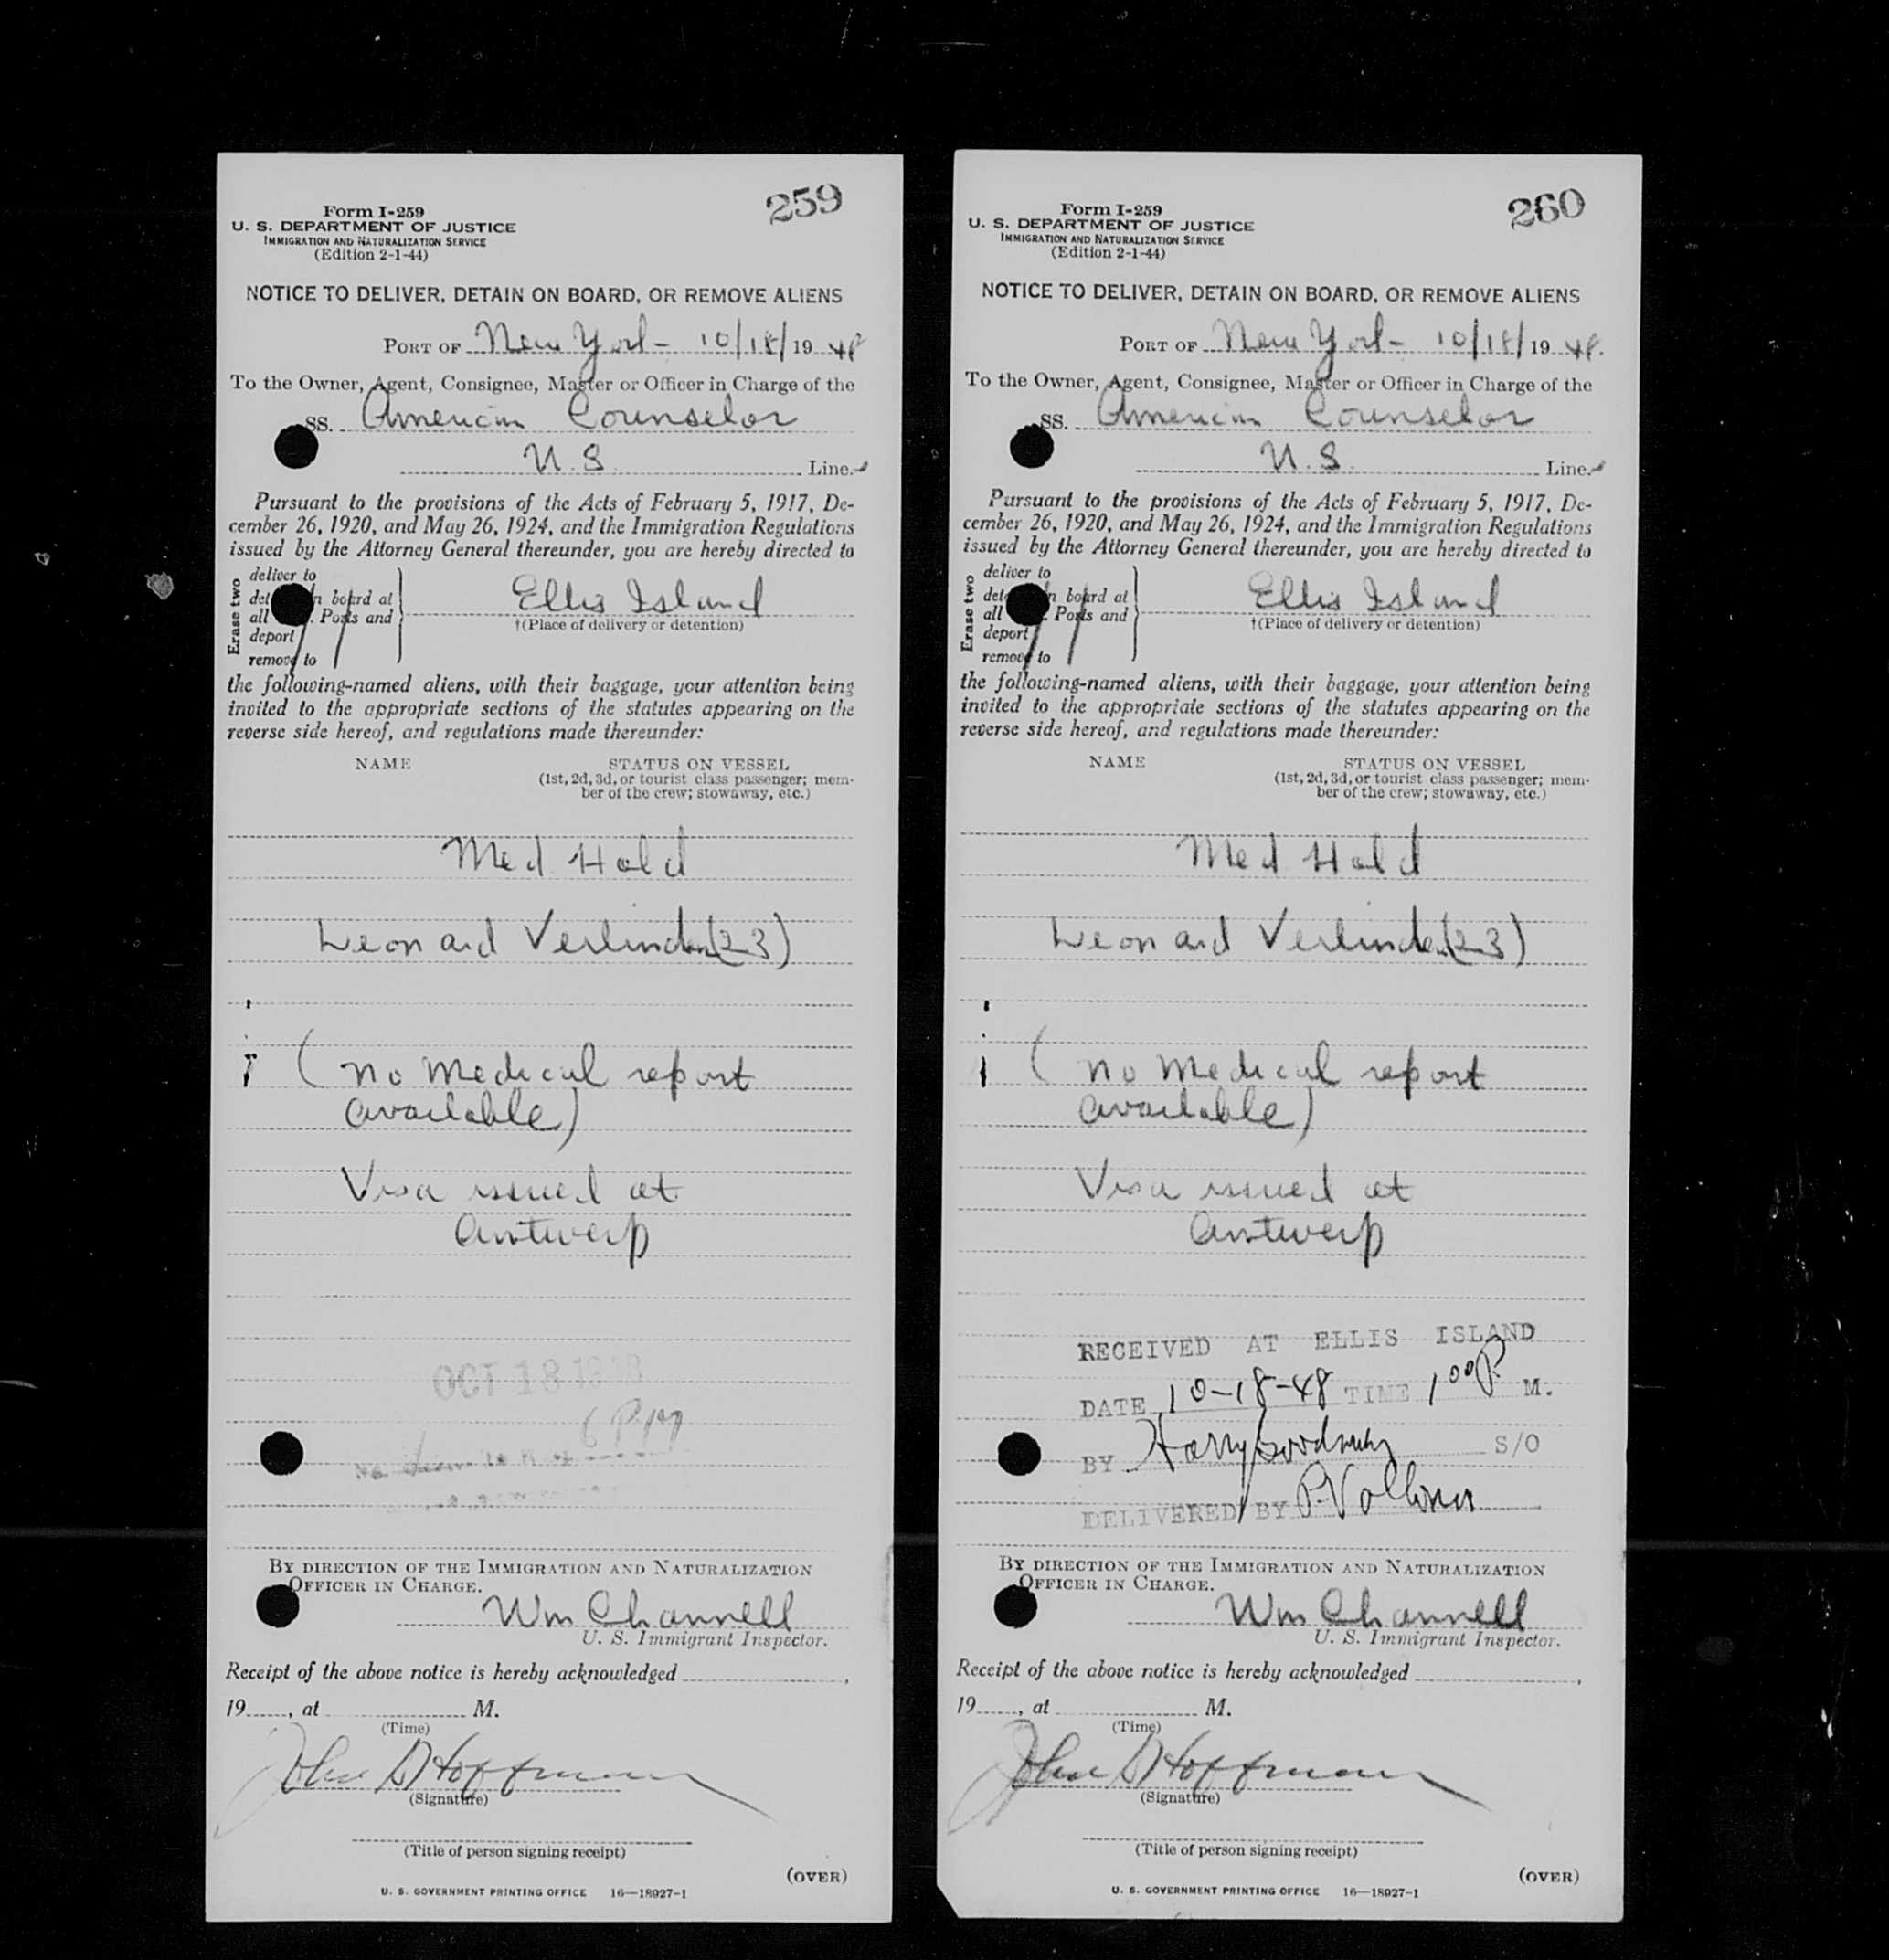 259
Form I-259
U. S. DEPARTMENT OF JUSTICE
IMMIGRATION AND NATURALIZATION SERVICE
(Edition 2-1-44)
NOTICE TO DELIVER, DETAIN ON BOARD, OR REMOVE ALIENS
PORT OF New York - 10/18/19 48
To the Owner, Agent, Consignee, Master or Officer in Charge of the
SS. American Counselor
U. S. Line.
Pursuant to the provisions of the Acts of February 5, 1917, De-
cember 26, 1920, and May 26, 1924, and the Immigration Regulations
issued by the Attorney General thereunder, you are hereby directed to
Erase two
deliver to
board at
all Ports and
deport
remove to
Ellis Island
†(Place of delivery or detention)
the following-named aliens, with their baggage, your attention being
invited to the appropriate sections of the statutes appearing on the
reverse side hereof, and regulations made thereunder:
NAME STATUS ON VESSEL
(1st, 2d, 3d, or tourist class passenger; mem-
ber of the crew; stowaway, etc.)
Med Hold
Leonard Verlinden (23)
(No medical report
available)
Visa issued at
Antwerp
OCT 18 1948
6 PM
BY DIRECTION OF THE IMMIGRATION AND NATURALIZATION
OFFICER IN CHARGE.
Wm Channell
U. S. Immigrant Inspector.
Receipt of the above notice is hereby acknowledged ,
19 , at M.
(Time)
John D Hoffman
(Signature)
(Title of person signing receipt)
(OVER)
U. S. GOVERNMENT PRINTING OFFICE 16—18927-1
260
Form I-259
U. S. DEPARTMENT OF JUSTICE
IMMIGRATION AND NATURALIZATION SERVICE
(Edition 2-1-44)
NOTICE TO DELIVER, DETAIN ON BOARD, OR REMOVE ALIENS
PORT OF New York - 10/18/19 48.
To the Owner, Agent, Consignee, Master or Officer in Charge of the
SS. American Counselor
U. S. Line.
Pursuant to the provisions of the Acts of February 5, 1917, De-
cember 26, 1920, and May 26, 1924, and the Immigration Regulations
issued by the Attorney General thereunder, you are hereby directed to
Erase two
deliver to
board at
all Ports and
deport
remove to
Ellis Island
†(Place of delivery or detention)
the following-named aliens, with their baggage, your attention being
invited to the appropriate sections of the statutes appearing on the
reverse side hereof, and regulations made thereunder:
NAME STATUS ON VESSEL
(1st, 2d, 3d, or tourist class passenger; mem-
ber of the crew; stowaway, etc.)
Med Hold
Leonard Verlinden (23)
(No medical report
available)
Visa issued at
Antwerp
RECEIVED AT ELLIS ISLAND
DATE 10-18-48 TIME 1 00 P. M.
BY Harry S/O
DELIVERED BY P.
BY DIRECTION OF THE IMMIGRATION AND NATURALIZATION
OFFICER IN CHARGE.
Wm Channell
U. S. Immigrant Inspector.
Receipt of the above notice is hereby acknowledged ,
19 , at M.
(Time)
John D Hoffman
(Signature)
(Title of person signing receipt)
(OVER)
U. S. GOVERNMENT PRINTING OFFICE 16—18927-1